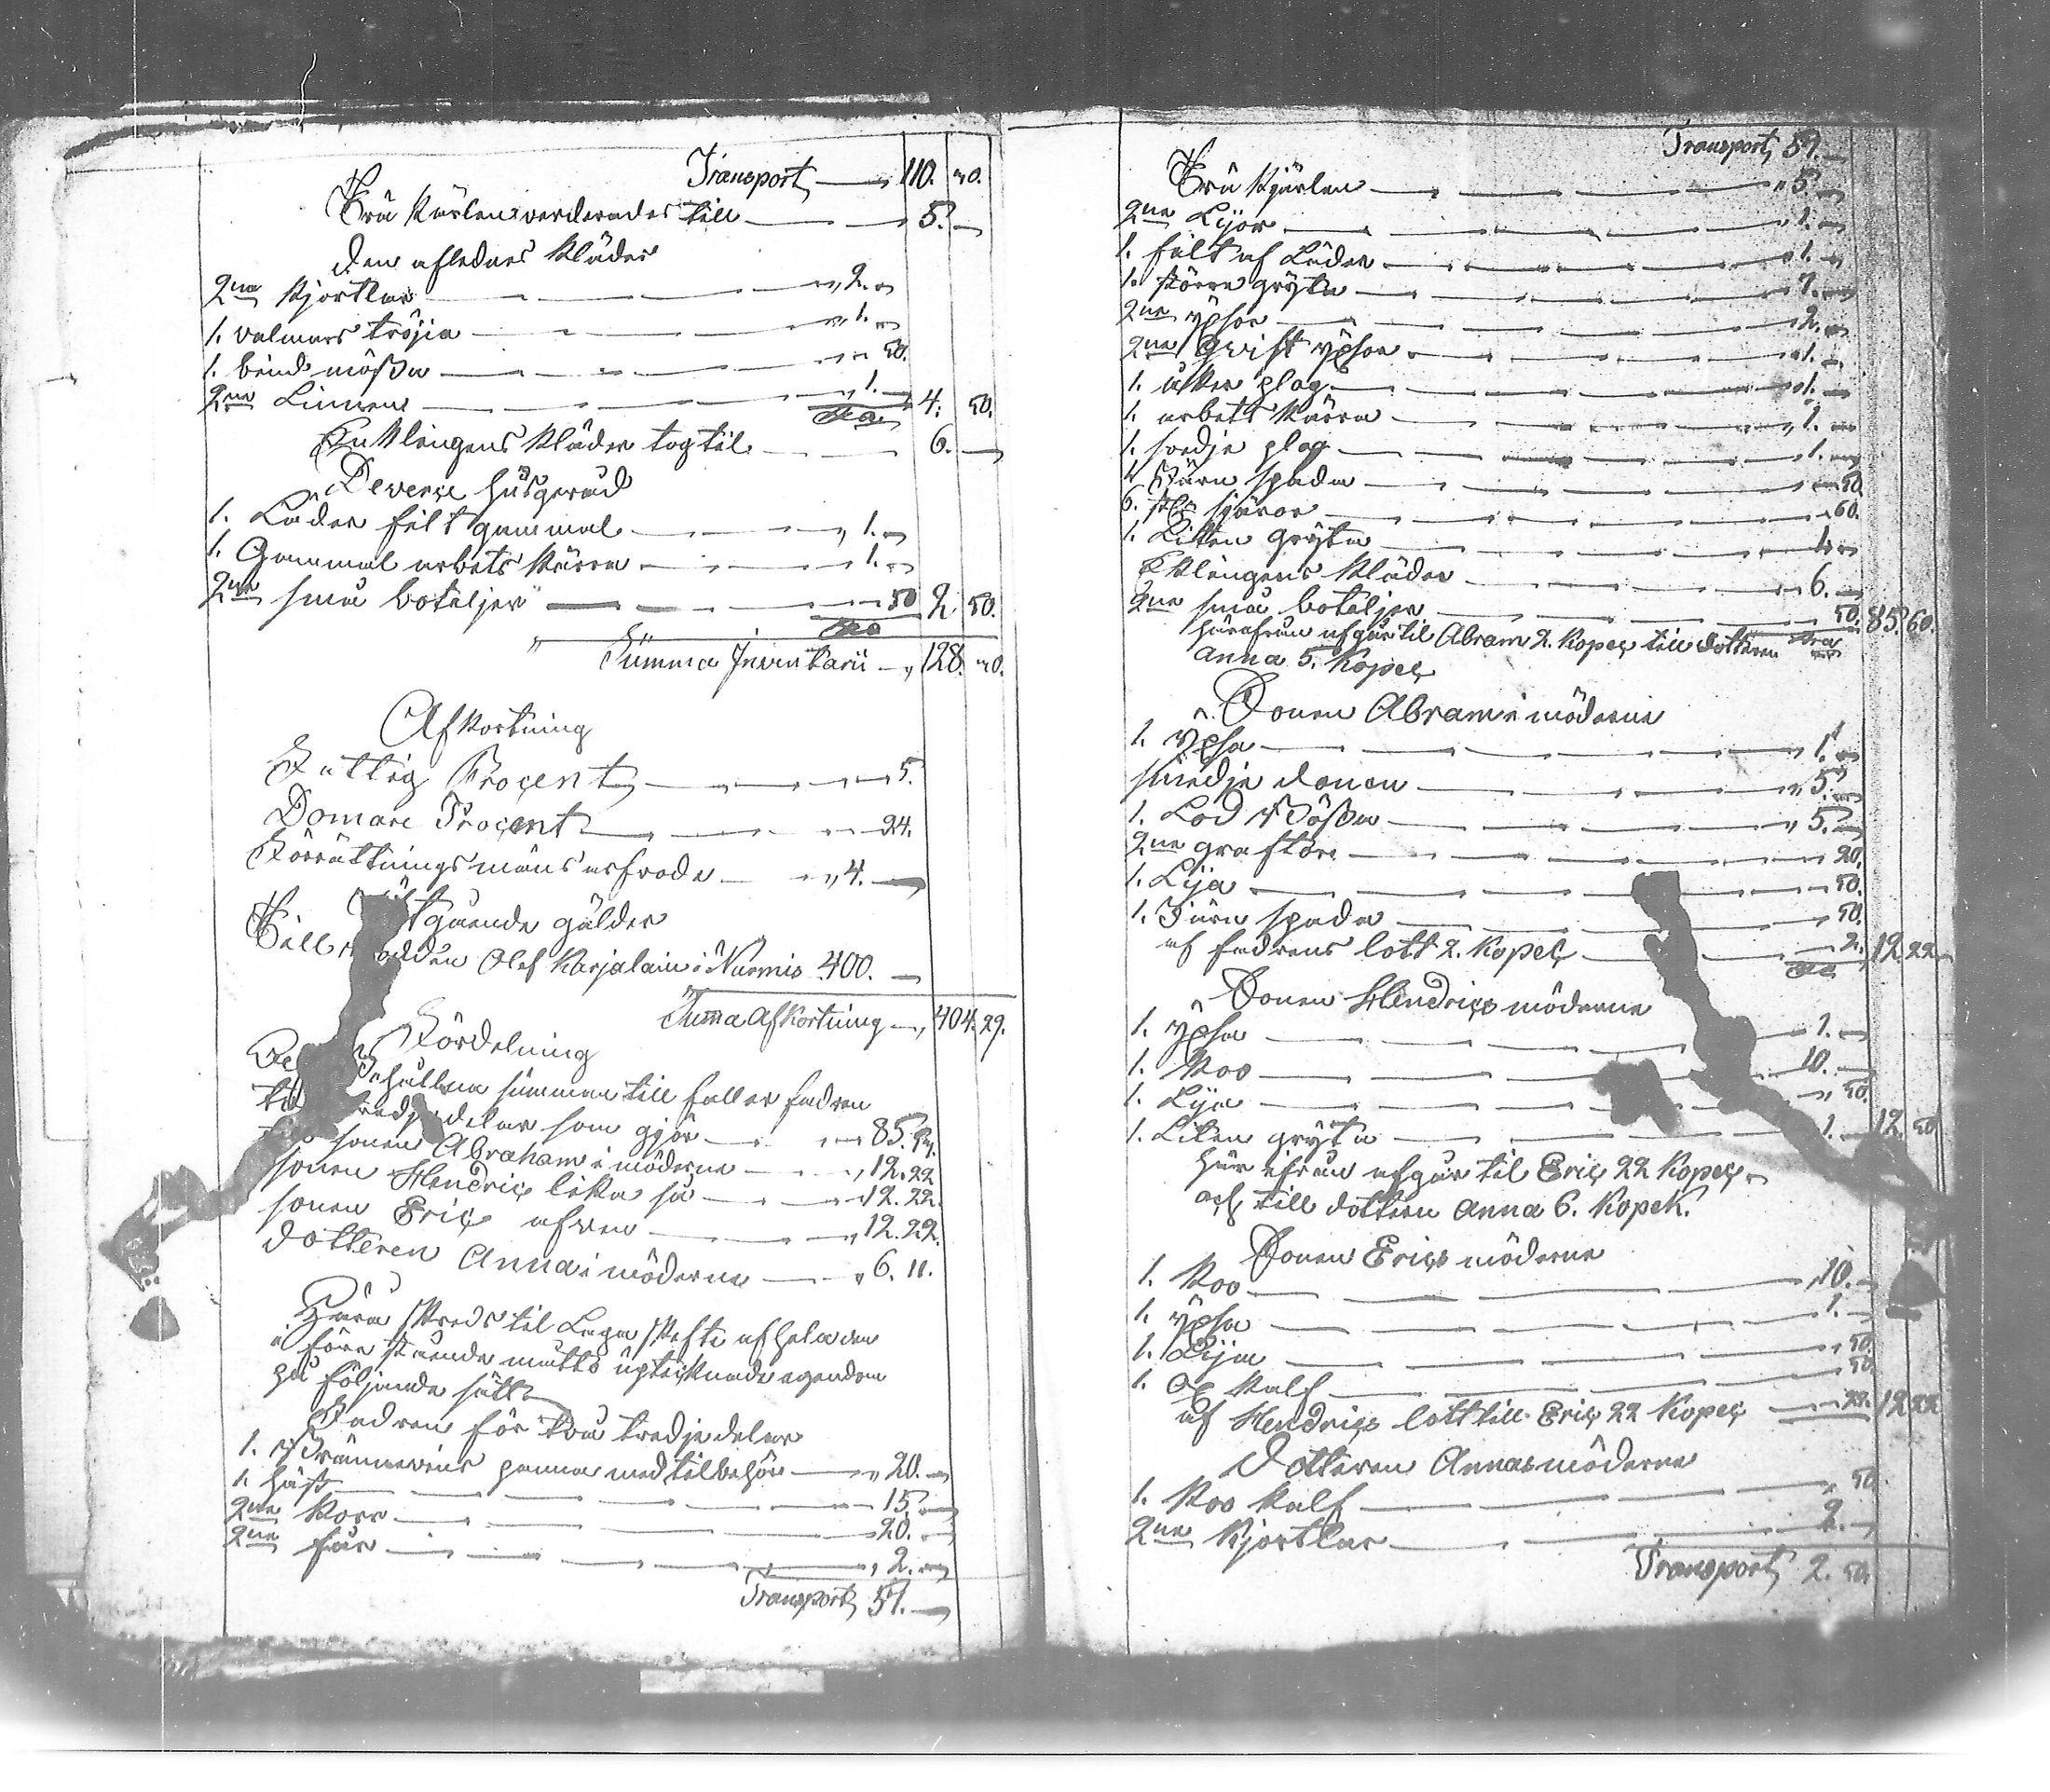 Transport — 110. 40.
Trä Kärlen värderades till — 5. —
Den aflednes Kläder
2ne Kjortlar — 2. —
1. valmars tröjia — 1. —
1. bind mössa — 50.
2ne Linnen — 1. — 4. 50.
Enklingens Kläder tog til — 6. —
Diverse husgeråd
1. Läder fält gammal — 1. —
1. Gammal arbets Kärra — 1. —
2ne små boteljer — 50 2 50.
Summa Inventarii — 128. 40.
Afkortning
Fattig Procent — 5.
Domare Procent — 24.
Förrättningsmäns arfvode — 4. —
gående gälder
Till Olof Karjalain i Nurmis 400. —
Summa Afkortning — 404. 29.
Fördelning
behållna summan till faller fadren
tredjedelar som gjör — 85.
sonen Abraham i möderne — 12. 22
sonen Hendric lika så — 12. 22.
sonen Eric äfven — 12. 22.
dotteren Anna i möderne — 6. 11.
Håra skreds til Laga skifte af hela den
i förestående måtto upteknade egendom
på följande sätt
Fadren för två tredjedelar
1. Brännevins panna med tilbehör — 20. —
1. häst — 15. —
2ne Kor — 20. —
2ne får — 2. —
Transport 57. —
Transport 57. —
Trä Kjärlen — 5. —
2ne Lijor — 1. —
1. fält af Läder — 1. —
1. större gryta — 7. —
2ne yxor — 2. —
2ne yxor — 1. —
1. åker plog — 1. —
1. arbets Kärra — 1. —
1. svedje plog — 1. —
1. Järn spada — 50
6. skäror — 60.
1. Liten gryta — 1. —
Enklingens Kläder — 6. —
2ne små boteljer — 50. 85. 60.
härafrån afgår til Abram 2. Kopec till dotteren
Anna 5. Kopec
Sonen Abram i möderne
1. yxa — 1. —
smedje donen — 5. —
1. Lod Bössa — 5. —
2ne — 20.
1. Lija — 50.
1. Järn spada — 50.
af fadrens lott 2. Kopec — 2. 12 22
Sonen Hendrics möderne
1. yxa — 1. —
1. Koo — 10. —
1. Lija — 50.
1. Liten gryta — 1. — 12. 50
här ifrån afgår til Eric 22 Kopec
och till dottern Anna 6. Kopek.
Sonen Erics möderne
1. Koo — 10. —
1. yxa — 1. —
1. Lija — 50.
1. Ox Kalf — 50
af Hendrics lott till Eric 22 Kopec — 22. 12 22
Dotteren Annas möderne
1. Koo Kalf — 50.
2ne Kjortlar — 2. —
Transport 2. 50.